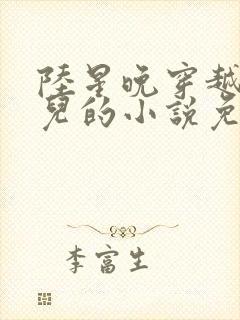 陸星晚穿越
兒的小說免
李富生